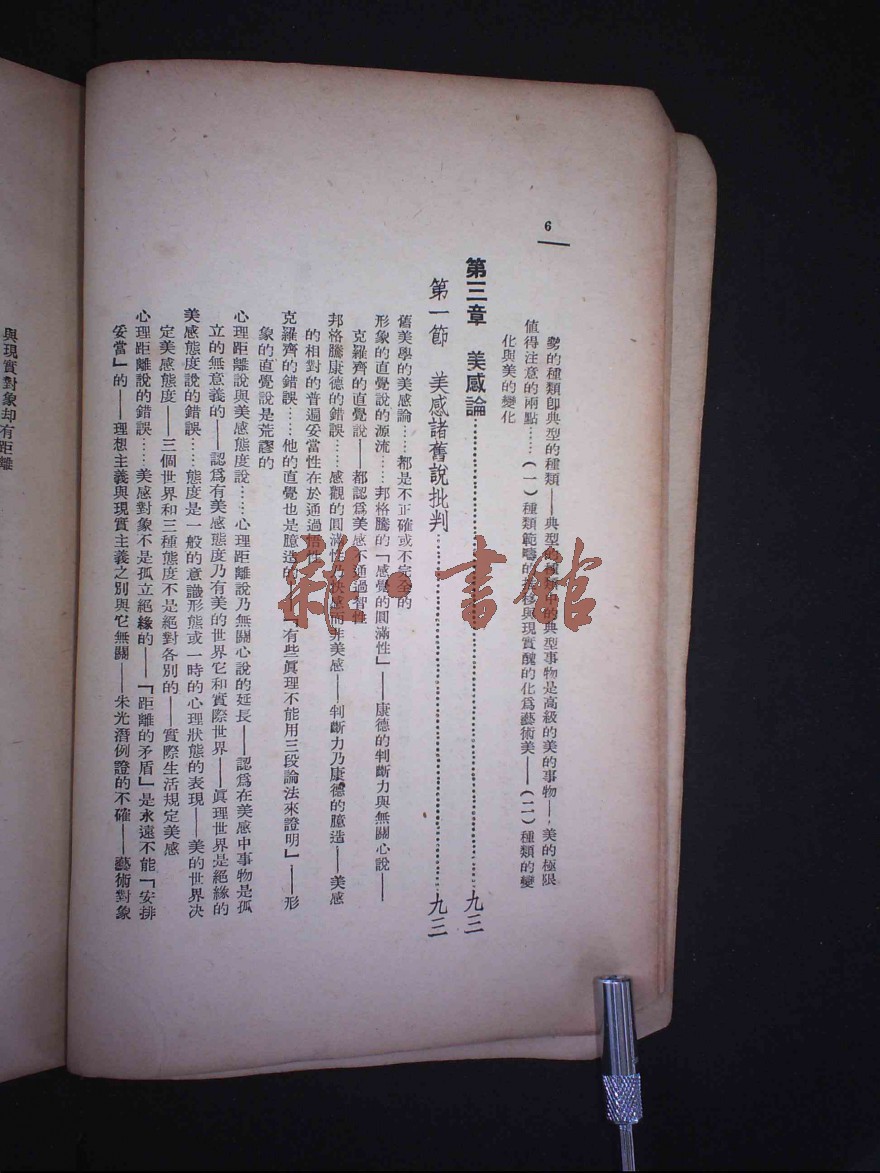 6
物的種類卽典型的種類——典型的種類中的典型事物是高級的美的事物——美的極限
値得注意的兩點……（一）種類範疇的 與現實醜的化爲藝術美——（二）種類的變
化與美的變化
第三章 美感論……九三
第一節 美感諸舊說批判……九三
舊美學的美感論……都是不正確或不完全的
形象的直覺說的源流……邦格騰的「感覺的圓滿性」——康德的判斷力與無關心說——
克羅齊的直覺說——都認爲美感不通過智性
邦格騰康德的錯誤……感觀的圓滿性乃快感而非美感——判斷力乃康德的臆造——美感
的相對的普遍妥當性在於通過悟性
克羅齊的錯誤……他的直覺也是臆造的——「有些眞理不能用三段論法來證明」——形
象的直覺說是荒謬的
心理距離說與美感態度說……心理距離說乃無關心說的延長——認爲在美感中事物是孤
立的無意義的——認爲有美感態度乃有美的世界它和實際世界——眞理世界是絕緣的
美感態度說的錯誤……態度是一般的意識形態或一時的心理狀態的表現——美的世界決
定美感態度——三個世界和三種態度不是絕對各別的——實際生活規定美感
心理距離說的錯誤……美感對象不是孤立絕緣的——「距離的矛盾」是永遠不能「安排
妥當」的——理想主義與現實主義之別與它無關——朱光潛例證的不確——藝術對象
與現實對象却有距離
雜·書館